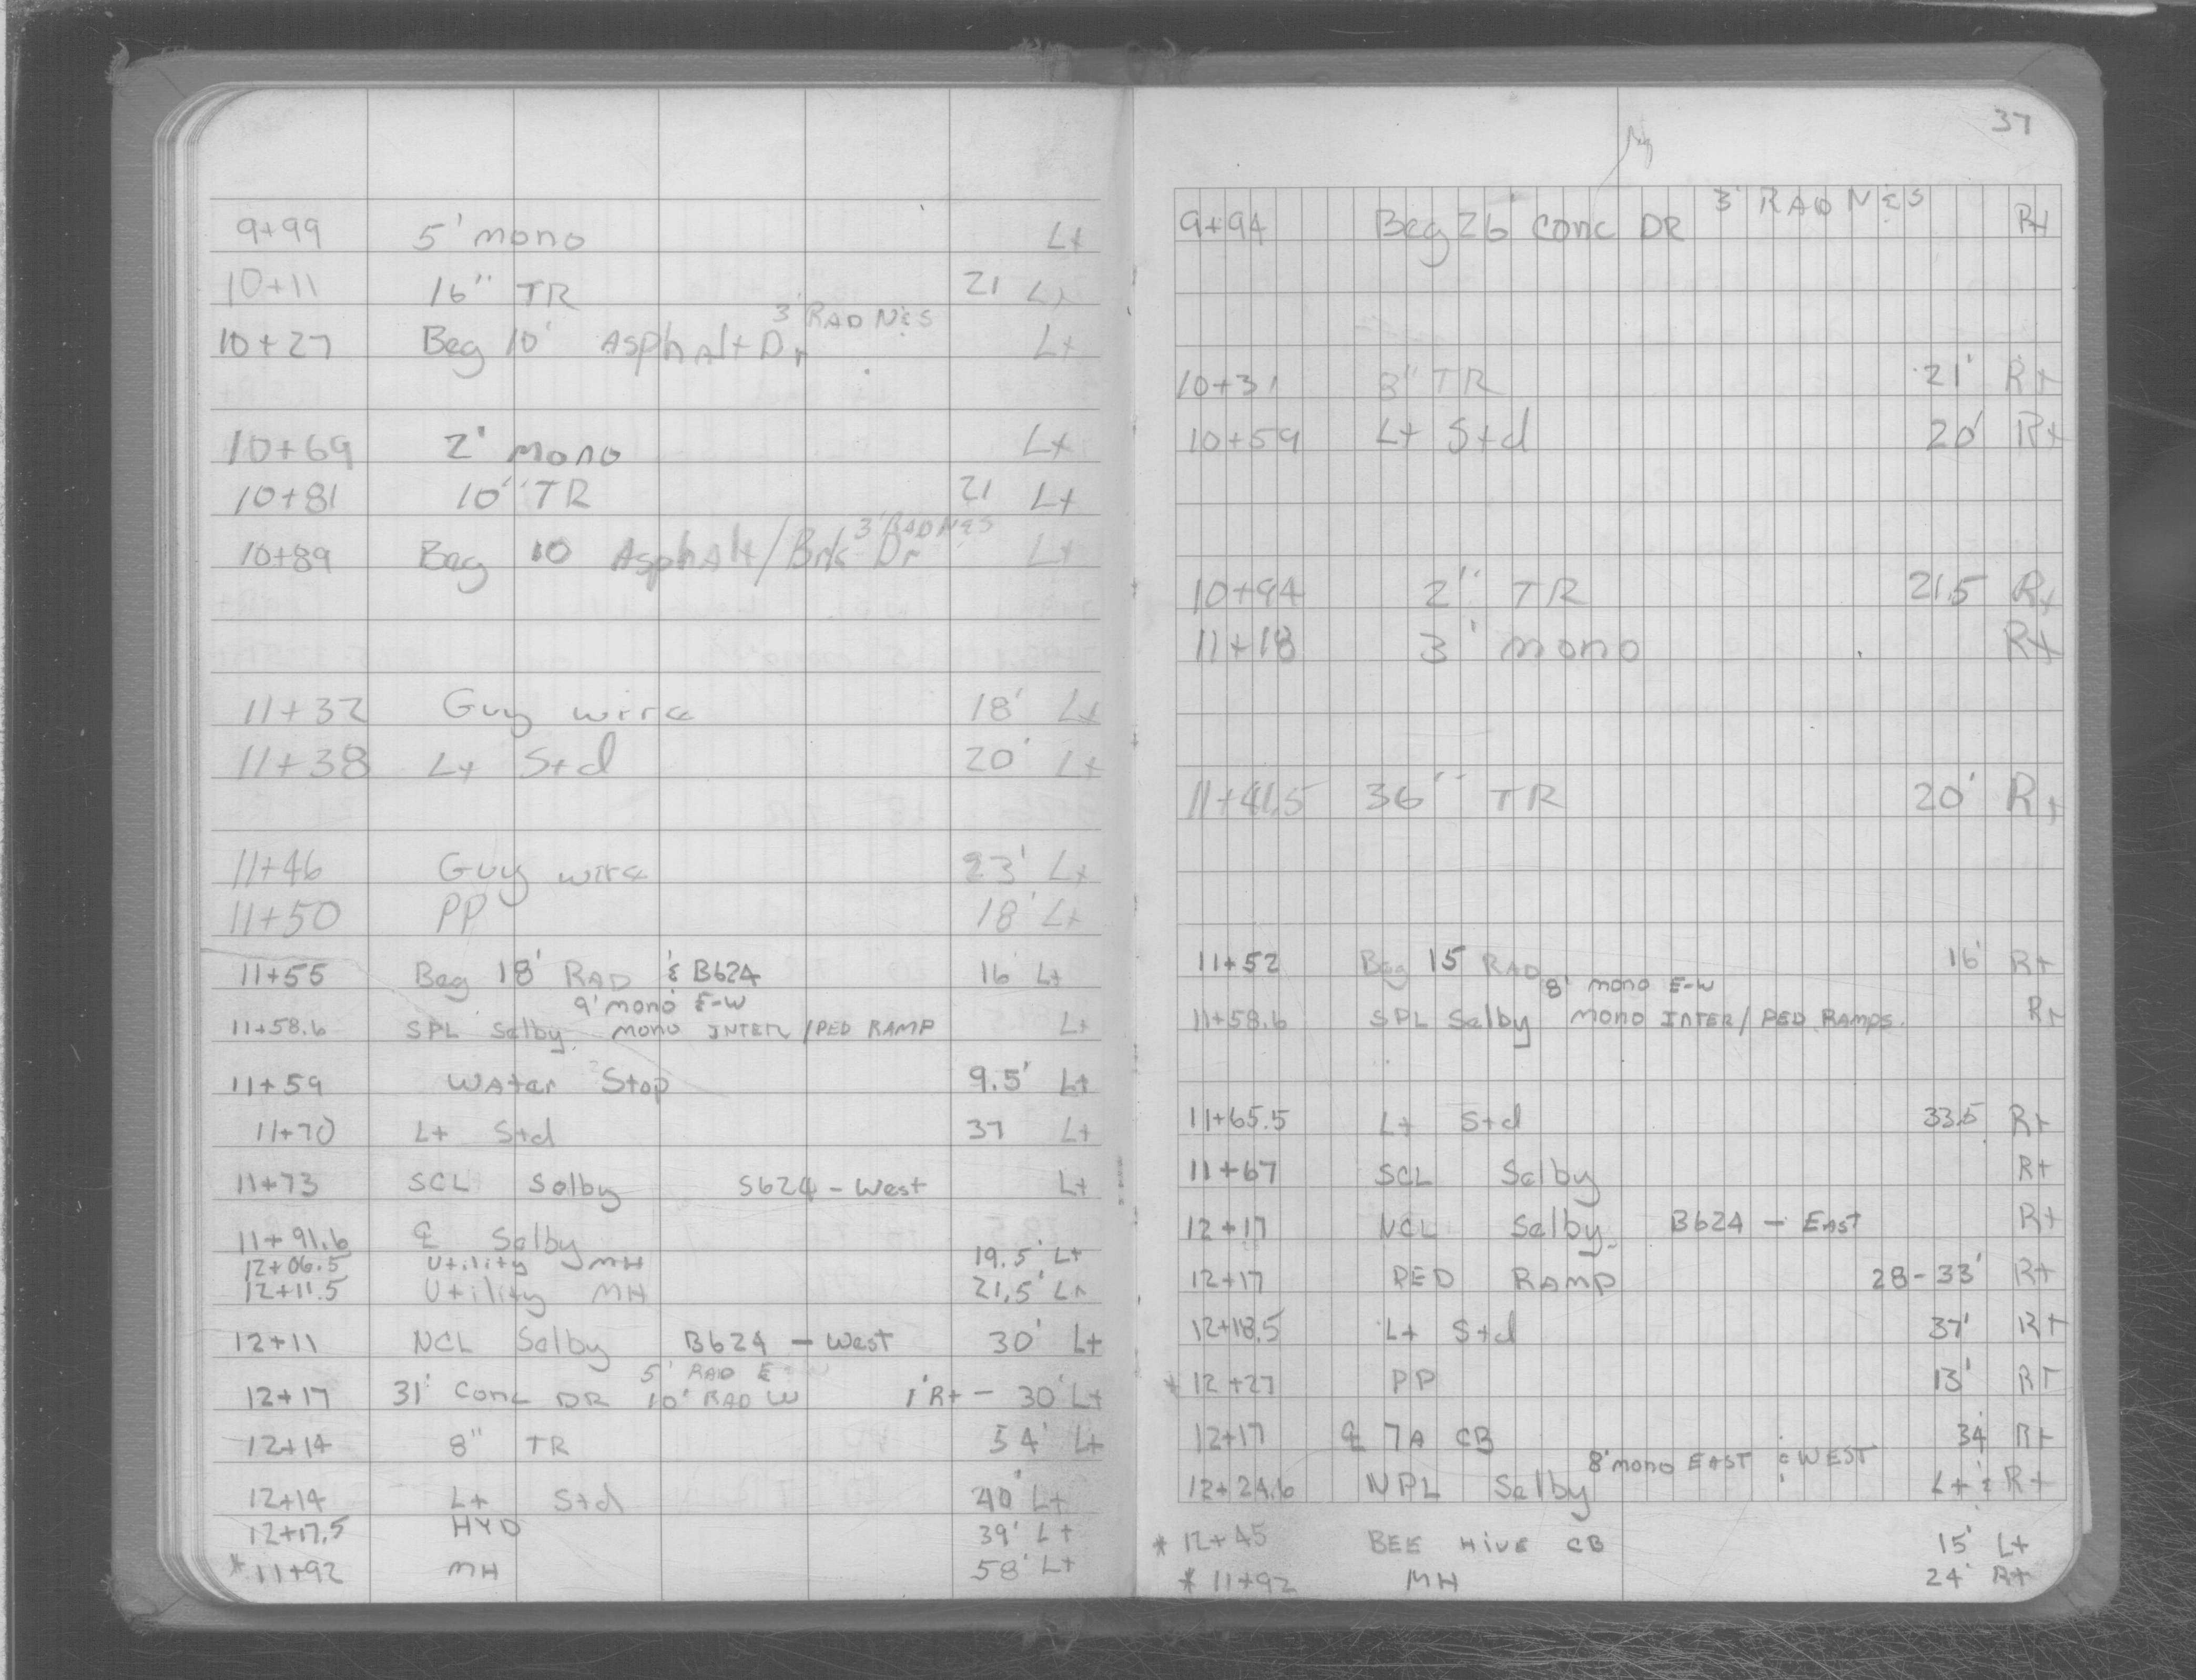 9+99 5' mono Lt
10+11 16" TR 21 Lt
3' RAD N&S
10+27 Beg 10' Asphalt Dr Lt
10+69 2' mono Lt
10+81 10" TR 21 Lt
3' RAD N&S
10+89 Beg 10 Asphalt/Brk Dr Lt
11+32 Guy wire 18' Lt
11+38 Lt Std 20' Lt
11+46 Guy wire 23' Lt
11+50 PP 18' Lt
11+55 Beg 18' RAD & B624 16' Lt
9' mono E-W
11+58.6 SPL Selby mono INTER/PED RAMP Lt
11+59 Water Stop 9.5' Lt
11+70 Lt Std 37 Lt
11+73 SCL Selby S624 - West Lt
11+91.6 ℄ Selby
12+06.5 Utility MH 19.5' Lt
12+11.5 Utility MH 21.5' Lt
12+11 NCL Selby B624 - West 30' Lt
5' RAD E
12+17 31' Conc DR 10' RAD W 1'Rt - 30' Lt
12+14 8" TR 54' Lt
12+14 Lt Std 40' Lt
12+17.5 HYD 39' Lt
* 11+92 MH 58' Lt
37
3' RAD N&S
9+94 Beg 26' Conc DR Rt
10+31 3" TR 21' Rt
10+59 Lt Std 20' Rt
10+94 2" TR 21.5 Rt
11+18 3' mono Rt
11+41.5 36" TR 20' Rt
11+52 Beg 15 RAD 16' Rt
8' mono E-W
11+58.6 SPL Selby mono INTER/PED RAMPS. Rt
11+65.5 Lt Std 33.5 Rt
11+67 SCL Selby Rt
12+17 NCL Selby B624 - EAST Rt
12+17 PED RAMP 28-33' Rt
12+18.5 Lt Std 37' Rt
* 12+27 PP 13' RT
12+17 ℄ 7A CB 34' Rt
8' mono EAST & WEST
12+24.6 NPL Selby Lt & Rt
* 12+45 BEE HIVE CB 15' Lt
* 11+92 MH 24' Rt